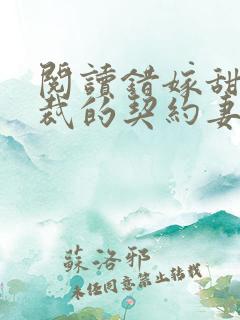 閱讀錯嫁甜
裁的契約妻
蘇洛邪
未經同意禁止轉載